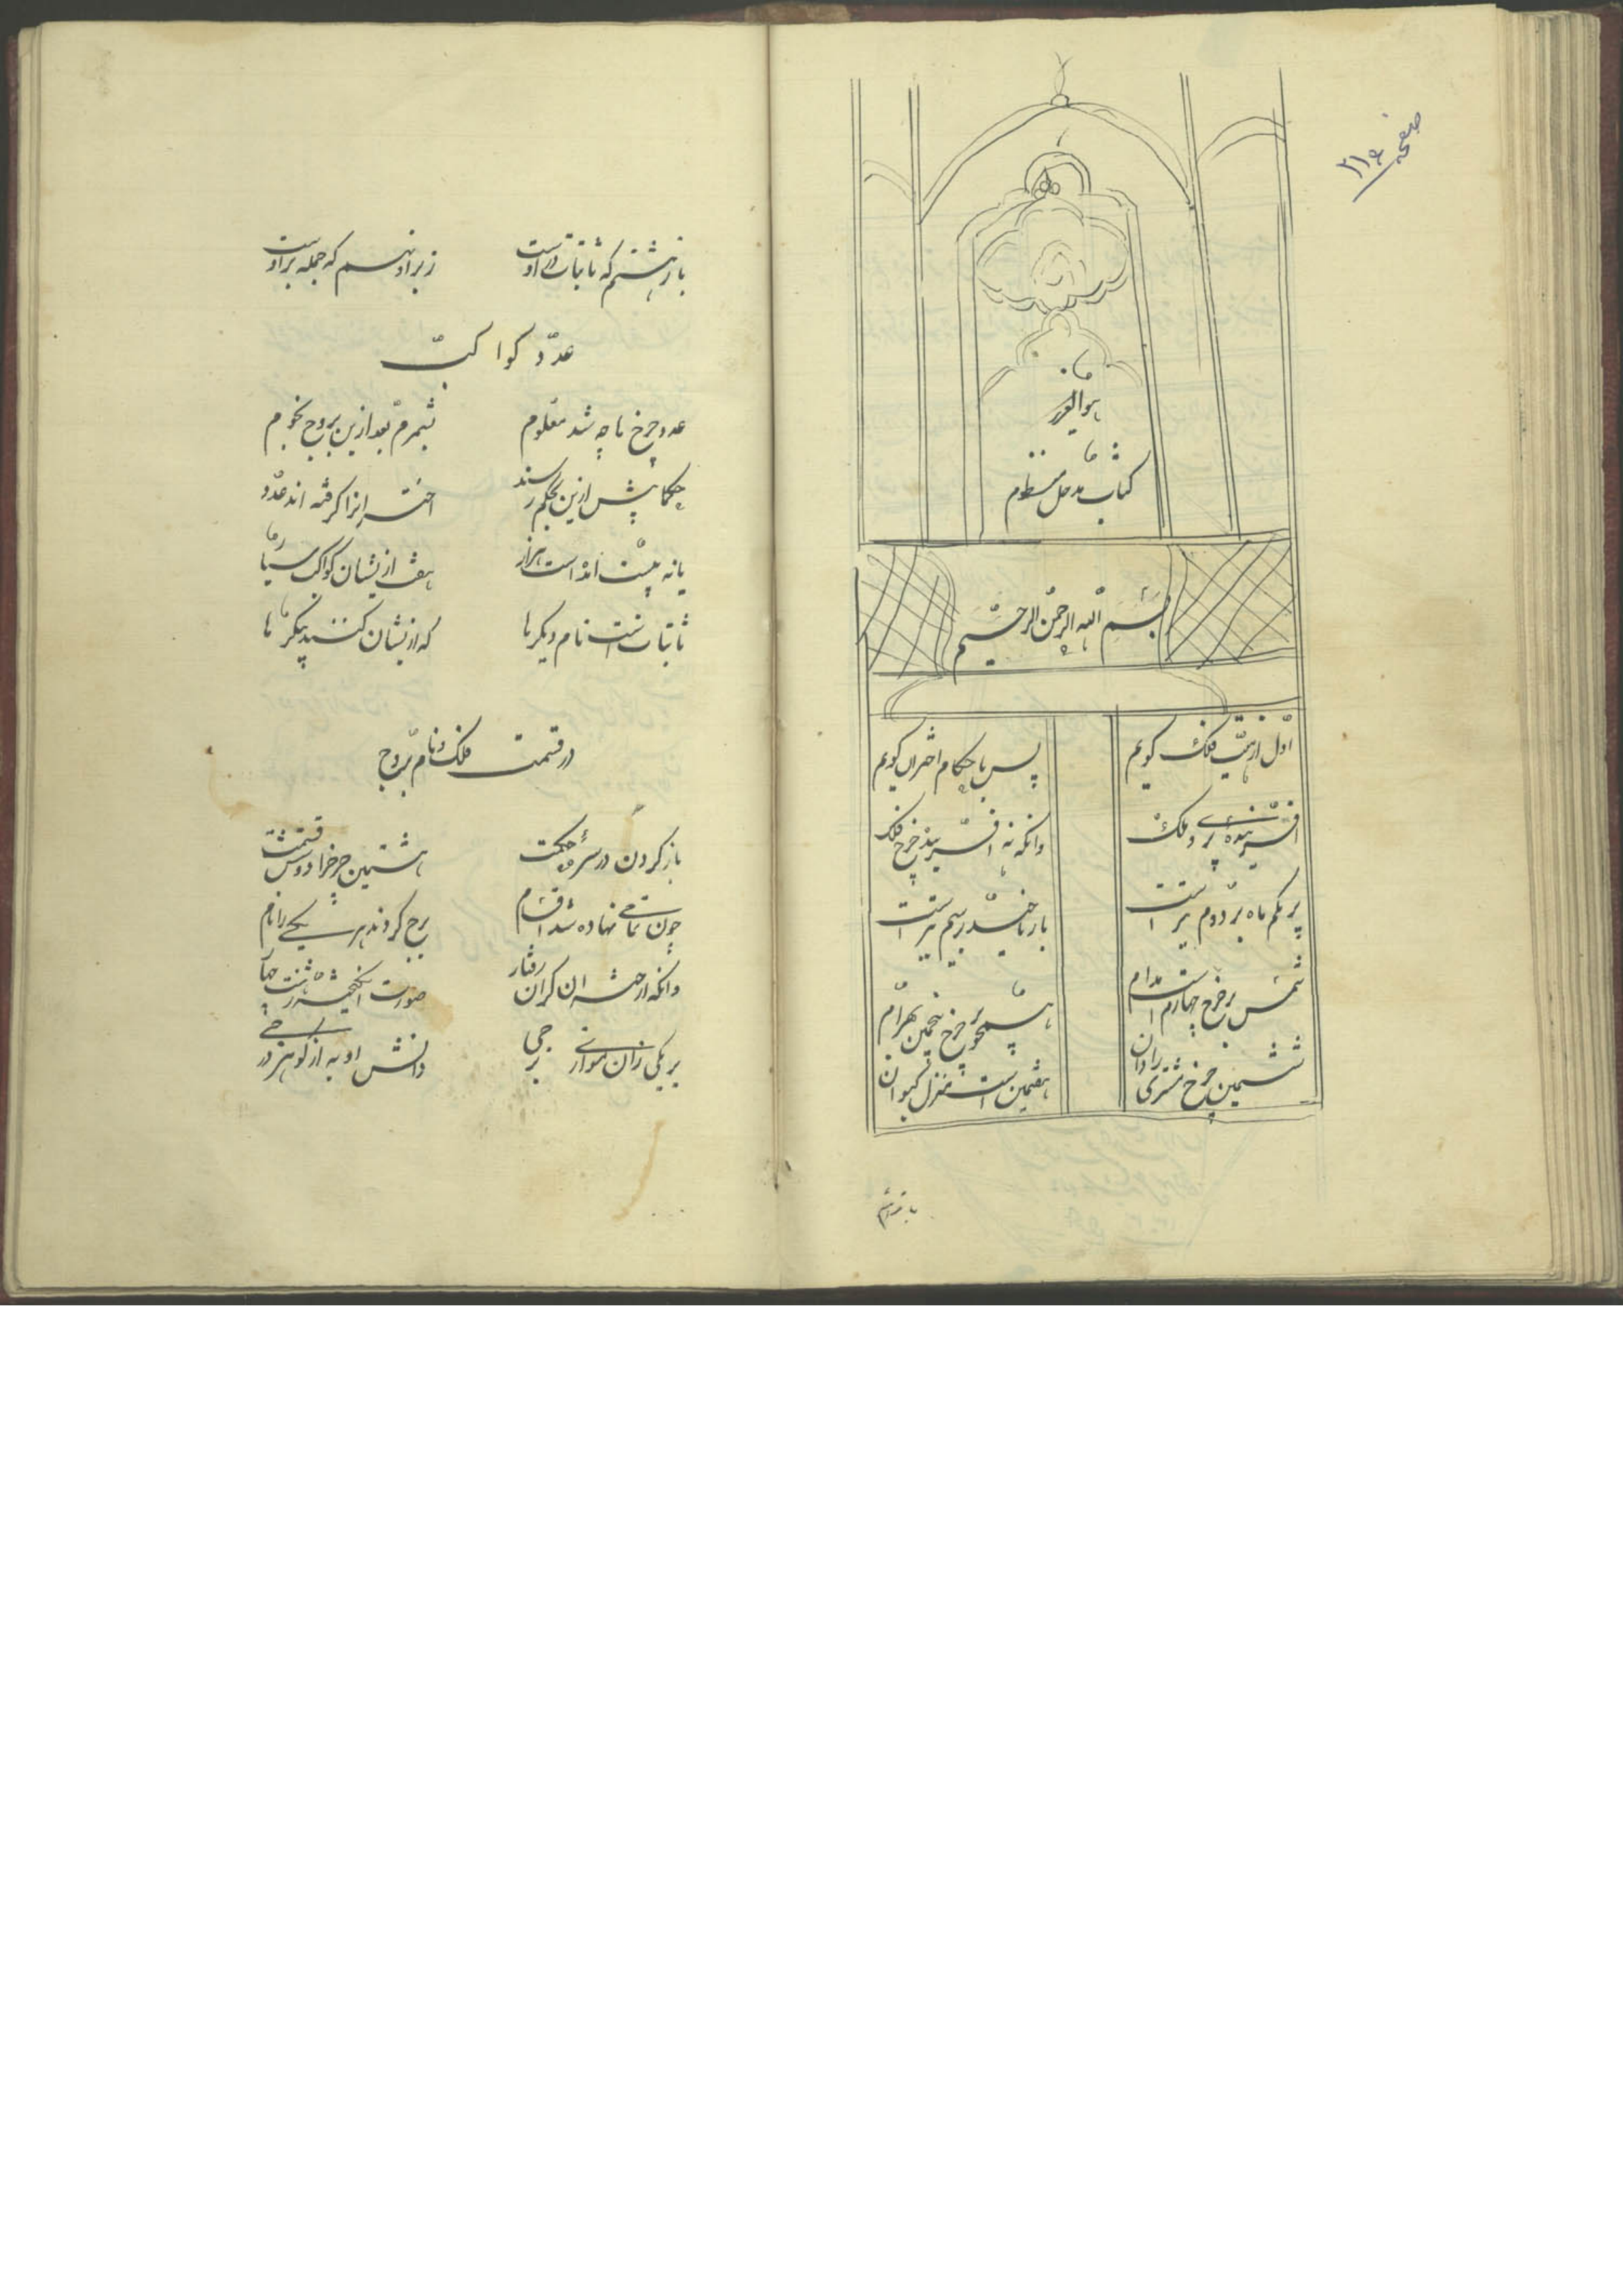 صفحه ۲۱۶
هوالعزیز
کتاب مدخل منظوم
بسم الله الرحمن الرحیم
اول از هیئت فلک گویم پس باحکام اختران گویم
آفریننده پری و ملک وانکه نه آفرید چرخ فلک
بر یکم ماه بر دوم تیر است باز ناهید بر سیم تیر است
شمس بر چرخ چهارم است مدام همچو بر چرخ پنجمین بهرام
ششمین چرخ مشتری را دان هفتمین است منزل کیوان
باز هشتم
باز هشتم که ثابتات در اوست زبر او نهم که جمله بر اوست
عدد کواکب
عدد چرخها چه شد معلوم بشمرم بعد ازین بروج نجوم
حکما پیش ازین بحکم رسند اختران را گرفته اند عدد
یا نه بیست اند است هزار هفت ازیشان کواکب سیار
ثابتات است نام دیگرها که ازیشان کنند پیکرها
در قسمت فلک و نام بروج
باز کردن در سر حکمت هشتمین چرخ را دوش قسمت
چون تمامی نهاده شد اقسام برج کردند هر یکی را نام
وانکه از اختران گران رفتار صورت انگیخته ز هشت چهار
بر یکی زان موازی برجی دانش او به از گوهر درجی